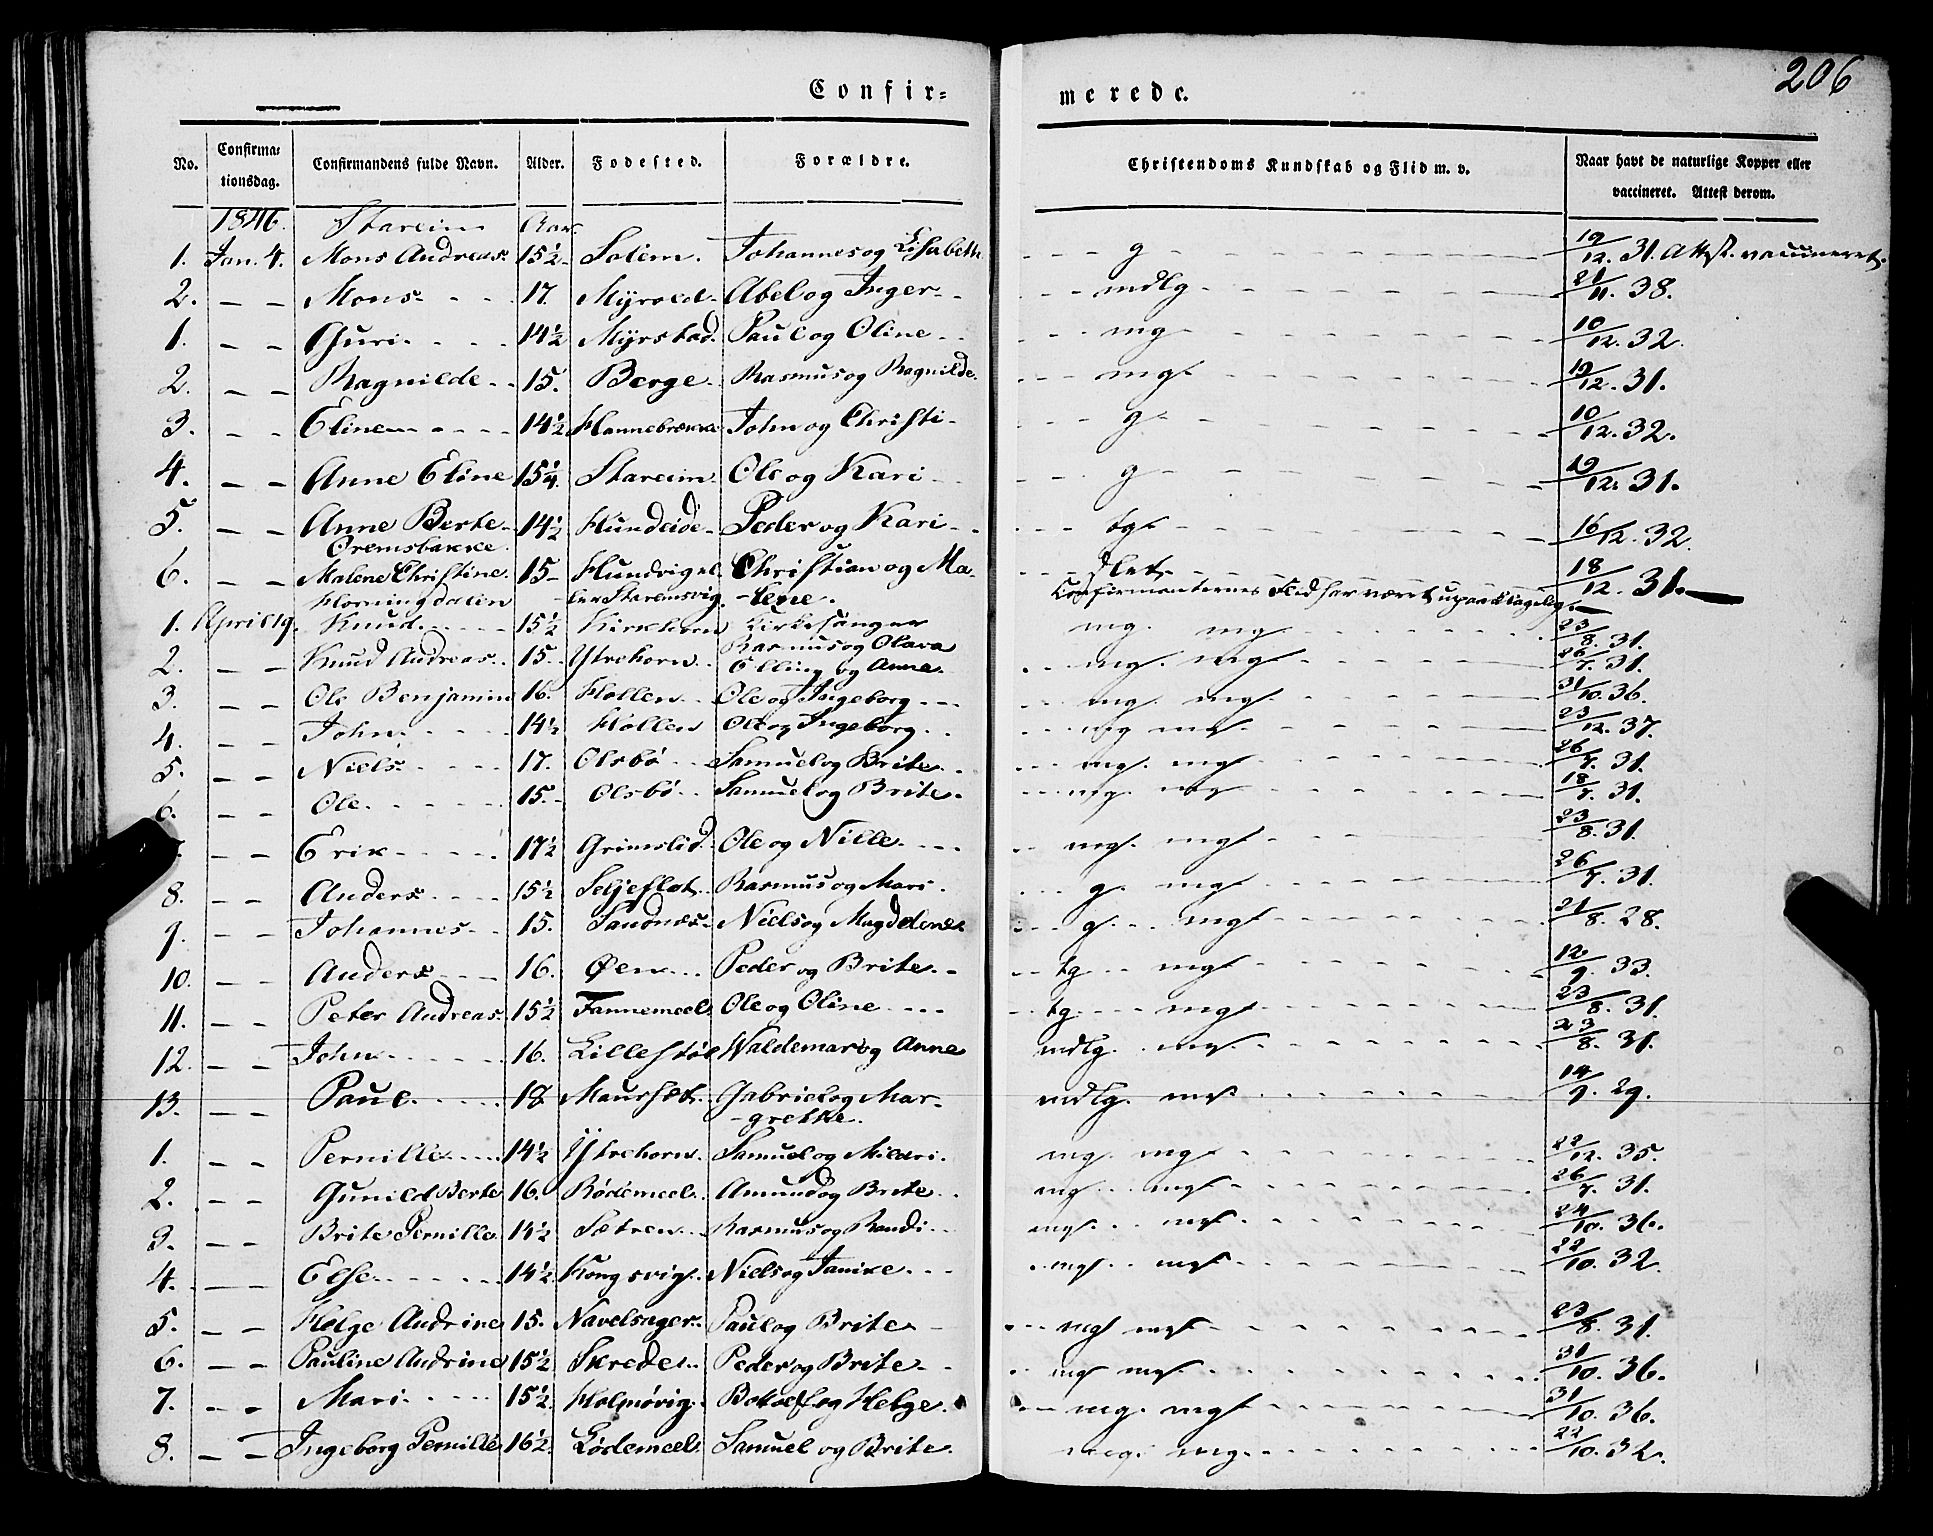 206
Confir- merede.
No. Confirma- tionsdag. Confirmandens fulde Navn. Alder. Fodested. Forældre. Christendoms Kundskab og Flid m. v. Naar havt de naturlige Kopper eller vaccineret. Attest derom.
1846. Stareim Aar.
1. Jan. 4. Mons Andreas 15½ Solem. Johannes og Lisabeth g 19/12. 31. Attst. vaccineret.
2. — — Mons 17. Myrold Abel og Inger mdlg 21/11. 38.
1. — — Guri 14½ Myrstad. Paul og Oline mg 10/12. 32.
2. — — Ragnilde 15. Berge Rasmus og Ragnilde mg 19/12. 31.
3. — — Eline 14½ Hannebrække John og Christi g 10/12. 32.
4. — — Anne Eline 15¼ Stareim Ole og Kari g 19/12. 31.
5. — — Anne Berte 14½ Hundeide Peder og Kari tg 16/12. 32.
Oremsbakke.
6. — — Malene Christine 15 Hundvig el. Christian og Ma- slet 18/12. 31.
ler Staremsvig -lene.
Confirmanternes Flid har været upaaklagelig.
Horningdalen
1. April 19. Knud 15½ Kirkhorn Kirkesanger mg. mg 23/8. 31.
Rasmus og Olava
2. — — Knud Andreas 15. Ytrehorn Elling og Anne mg. mg 26/7. 31.
3. — — Ole Benjamin 16. Hollen Ole og Ingeborg mg. mg 31/10. 36.
4. — — John 14½ Hollen Ole og Ingeborg mg mg 23/12. 37.
5. — — Niels 17. Olsbø Samuel og Brite mg. mg 26/7. 31.
6. — — Ole 15. Olsbø Samuel og Brite mg. mg 18/7. 31.
— — Erik 17½ Grimslid Ole og Nille mg. mg 23/8. 31.
8. — — Anders 15½ Seljeflot Rasmus og Mari g. mg 26/7. 31.
9. — — Johannes 15. Sandnes Niels og Magdelene g. mg 21/8. 28.
10. — — Anders 16. Øen Peder og Brite tg mg 12/9. 33.
11. — — Peter Andreas 15½ Tannemeel Ole og Oline tg mg 23/8. 31.
12. — — John 16. Lillestøl Waldemar og Anne mdlg. mg 23/8. 31.
13. — — Paul 18 Maurset Gabriel og Mar- mdlg. mg 14/9. 29.
-grethe.
1. — — Pernille 14½ Ytrehorn Samuel og Mildri mg. mg 22/12. 35.
2. — — Gunild Berte 16. Rødemeel Amund og Brite mg mg 26/7. 31.
3. — — Brite Pernille 14½ Sætren Rasmus og Randi mg mg 24/10. 36.
4. — — Else 14½ Kongsvig Niels og Janike mg mg 22/10. 32.
5. — — Helge Andrine 15. Navelsager Paul og Brite mg mg 23/8. 31.
6. — — Pauline Andrine 15½ Skrede Peder og Brite mg mg 31/10. 36.
7. — — Mari 15½ Holmøvig Botolf og Helge mg. mg 31/10. 36.
8. — — Ingeborg Pernille 16½ Lødemeel Samuel og Brite mg mg 22/10. 32.